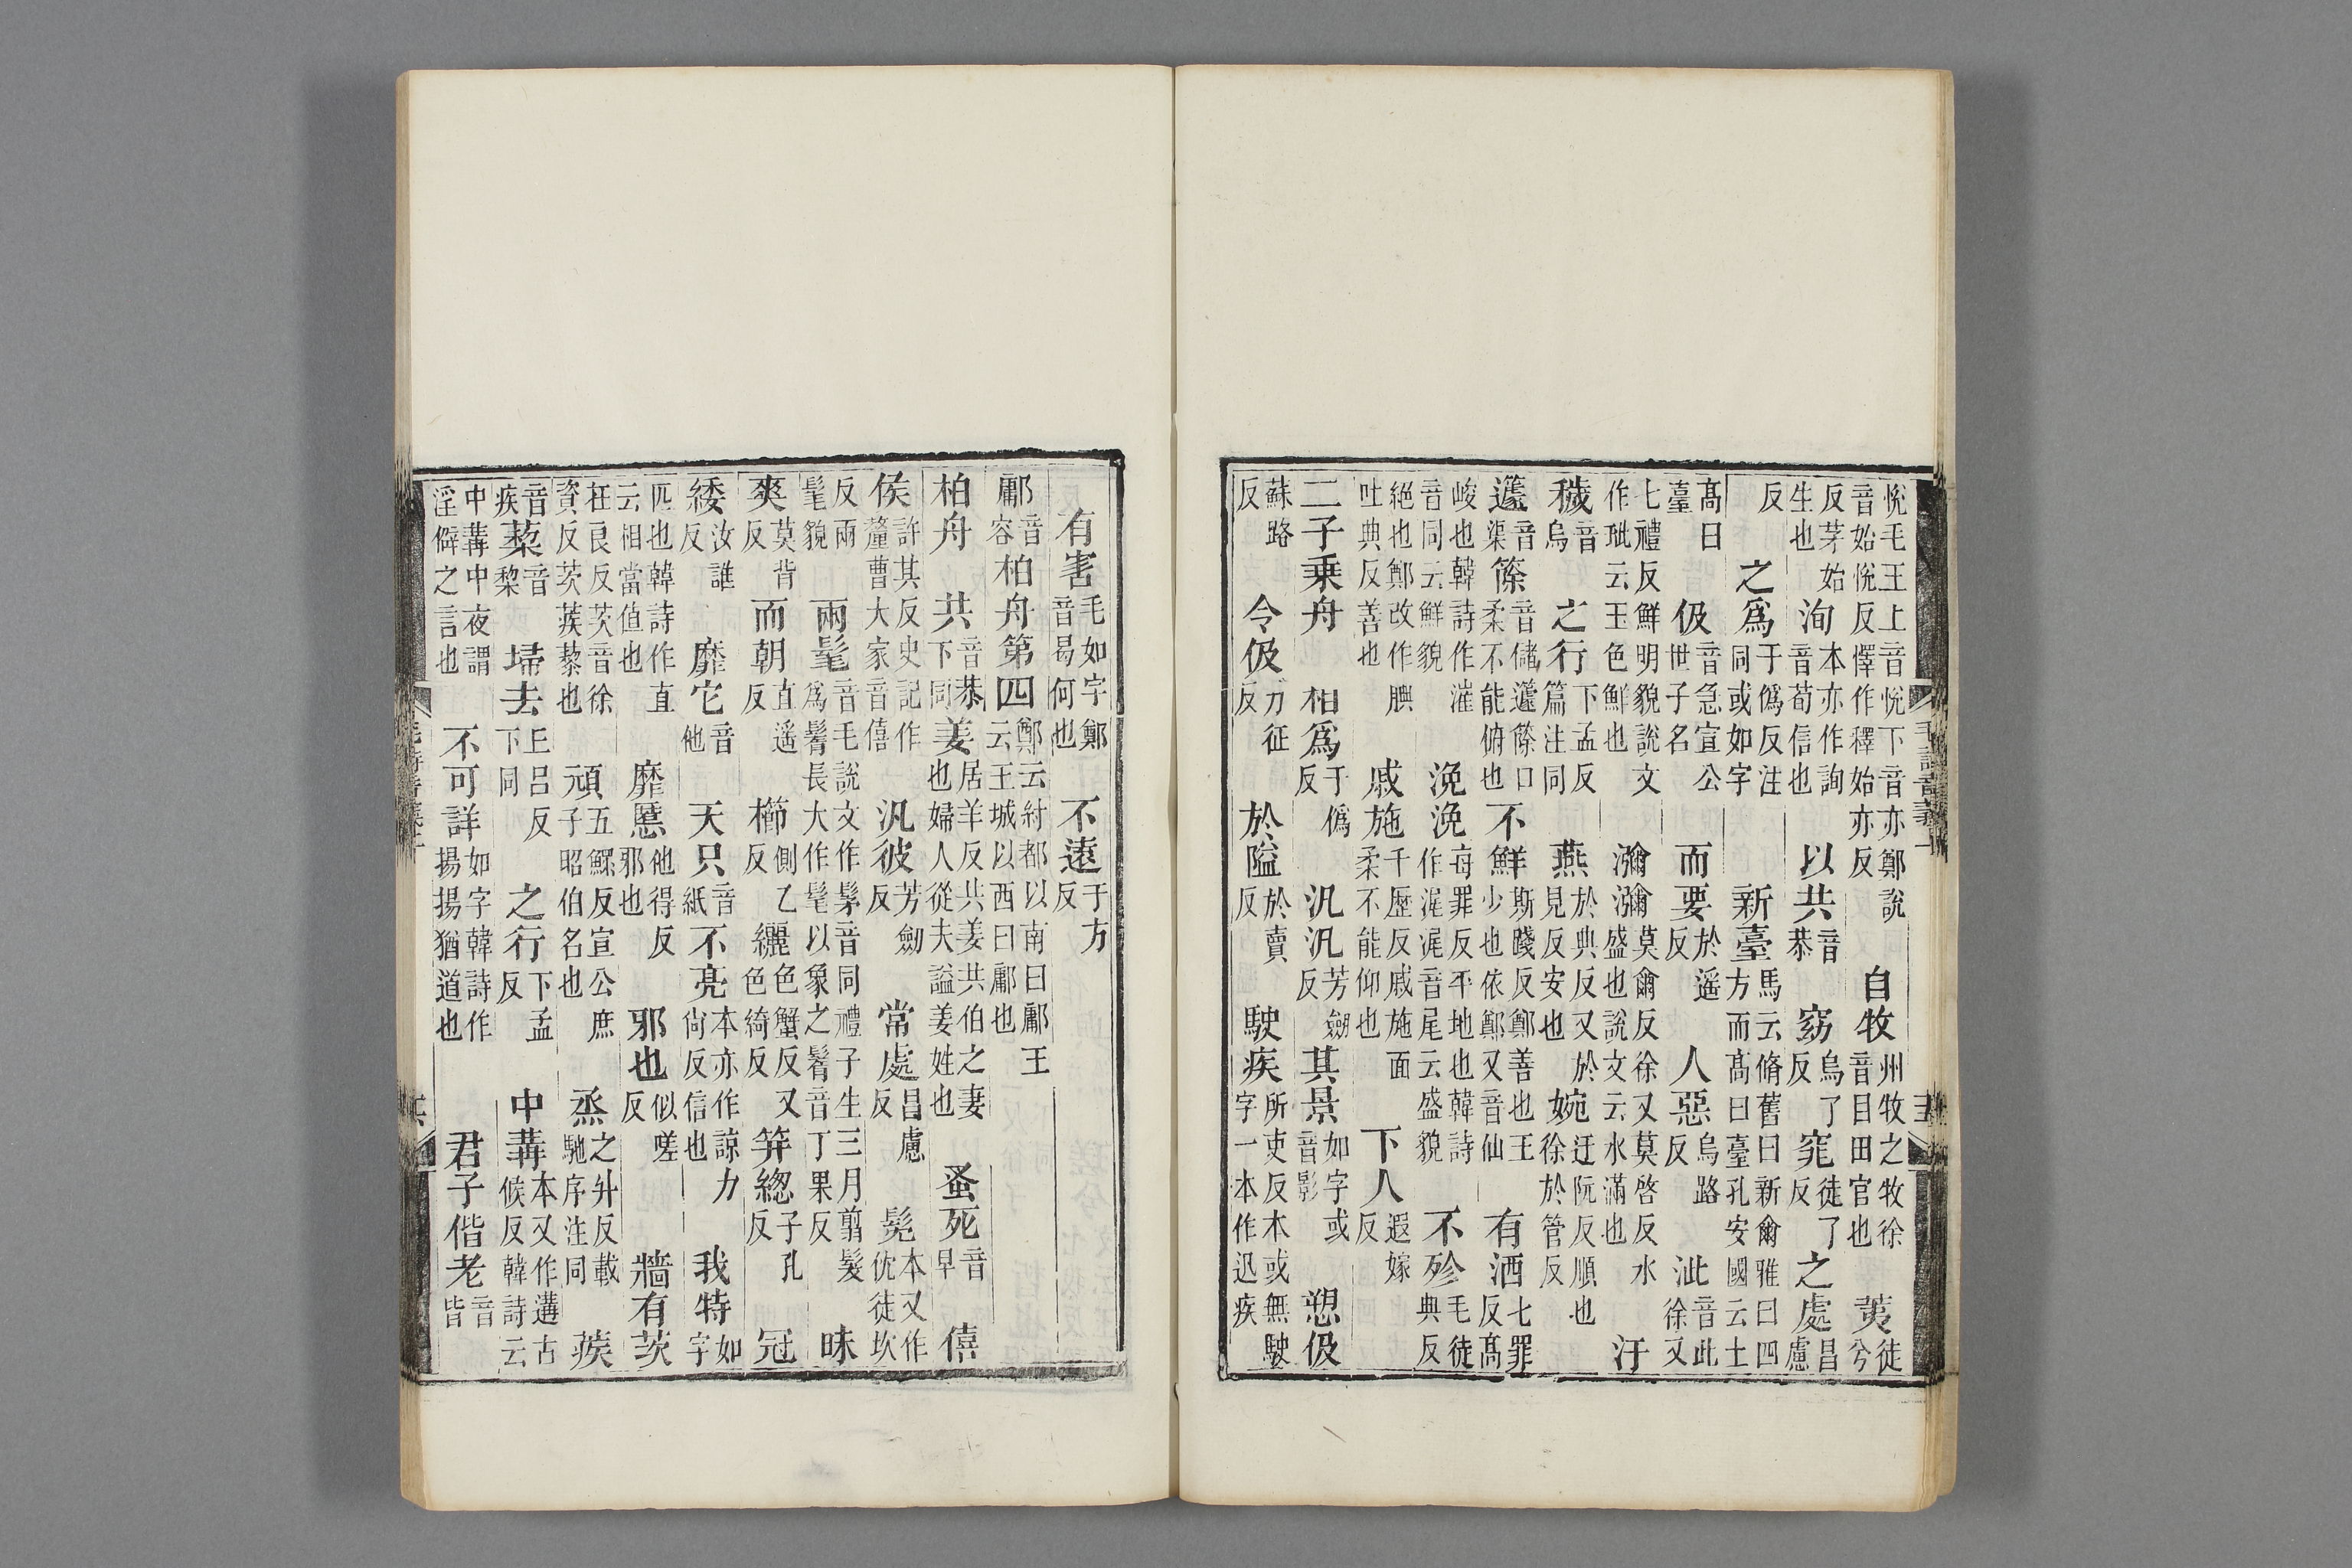 悅毛王上音悅下音亦鄭說音始悅反懌作釋始亦反 自牧州牧之牧徐音目田官也 荑徒兮
反茅始生也 洵本亦作詢音荀信也 以共音恭 窈烏了反 窕徒了反 之處昌慮
反 之爲于僞反注同或如字 新臺馬云脩舊曰新爾雅曰四方而髙曰臺孔安國云土
髙曰臺 伋音急宣公世子名 而要於遥反 人惡烏路反 泚音此徐又
七禮反鮮明貌說文作玼云玉色鮮也 瀰瀰莫爾反徐又莫啓反水盛也說文云水滿也 汙
穢音烏 之行下孟反篇注同 燕於典反又於見反安也 婉迂阮反順也徐於管反
籧音渠 篨音儲籧篨口柔不能俯也 不鮮斯踐反鄭善也王少也依鄭又音仙 有洒七罪反髙
峻也韓詩作漼音同云鮮貌 浼浼每罪反平地也韓詩作浘浘音尾云盛貌 不殄毛徒典反
絶也鄭改作腆吐典反善也 戚施千歷反戚施面柔不能仰也 下人遐嫁反
二子乗舟 相爲于僞反 汎汎芳劒反 其景如字或音影 愬伋
蘇路反 令伋力征反 於隘於賣反 駛疾所吏反本或無駛字一本作迅疾
毛詩音義上
有害毛如字鄭音曷何也 不遠于方反
鄘音容 柏舟第四鄭云紂都以南曰鄘王云王城以西曰鄘也
柏舟 共音恭下同 姜居羊反共姜共伯之妻也婦人從夫謚姜姓也 蚤死音早 僖
侯許其反史記作釐曹大家音僖 汎彼芳劒反 常處昌慮反 髧本又作优徒坎
反兩髦貌 兩髦音毛說文作髳音同禮子生三月翦髮爲鬌長大作髦以象之鬌音丁果反 昧
爽莫背反 而朝直遥反 櫛側乙反 纚色蟹反又色綺反 笄緫子孔反 冠
緌汝誰反 靡它音他 天只音紙 不亮本亦作諒力尙反信也 我特如字
匹也韓詩作直云相當值也 靡慝他得反邪也 邪也似嗟反 牆有茨
在良反茨音徐資反茨蒺藜也 頑五鰥反宣公庶子昭伯名也 烝之升反載馳序注同 蒺
音疾 蔾音黎 埽去上呂反下同 之行下孟反 中冓本又作遘古候反韓詩云
中冓中夜謂淫僻之言也 不可詳如字韓詩作揚揚猶道也 君子偕老音皆